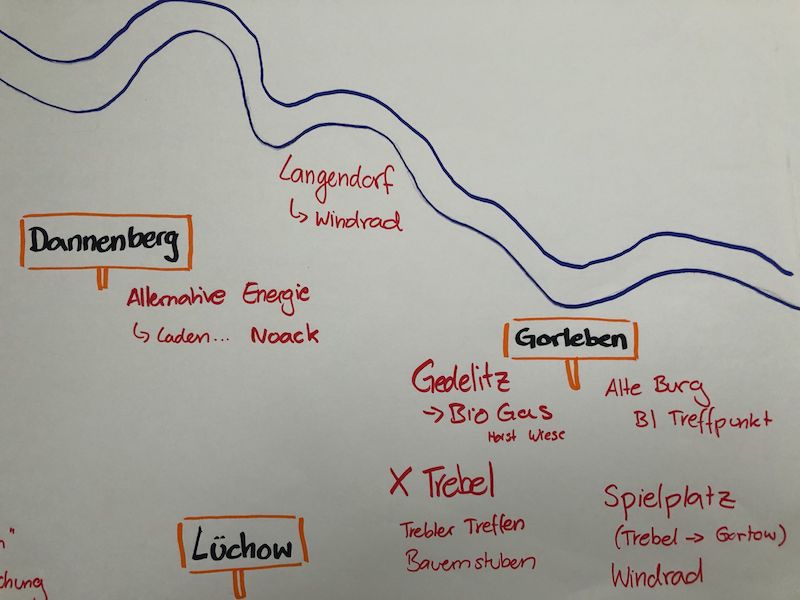 Langendorf
↳ Windrad
Dannenberg
Alternative Energie
↳ Laden... Noack
Gorleben
Gedelitz
→ Bio Gas
Horst Wiese
Alte Burg
BI Treffpunkt
X Trebel
Trebler Treffen
Bauernstuben
Spielplatz
(Trebel → Gartow)
Windrad
Lüchow